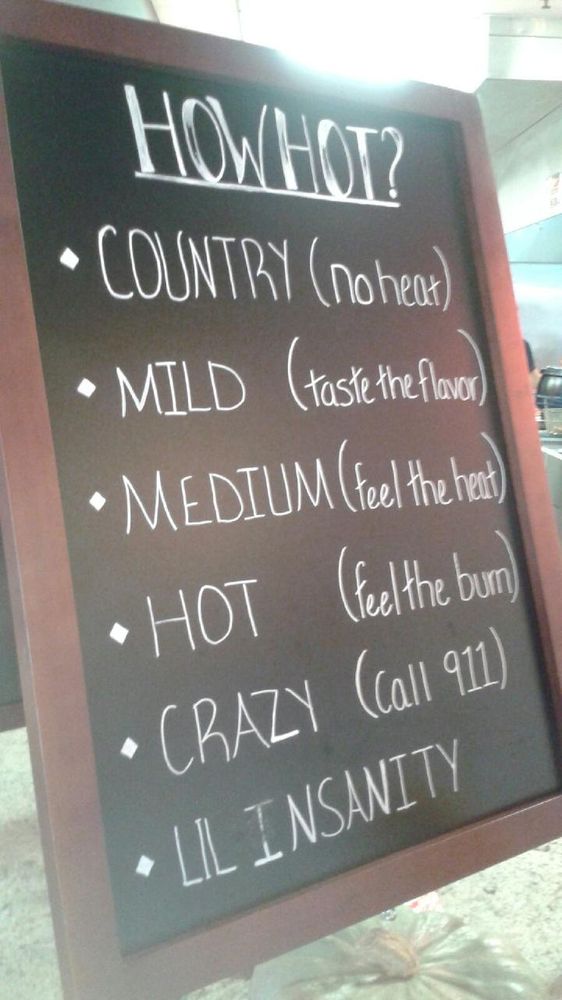 HOW HOT?
COUNTRY (no heat)
MILD (taste the flavor)
MEDIUM (feel the heat)
HOT (feel the burn)
CRAZY (Call 911)
LIL INSANITY